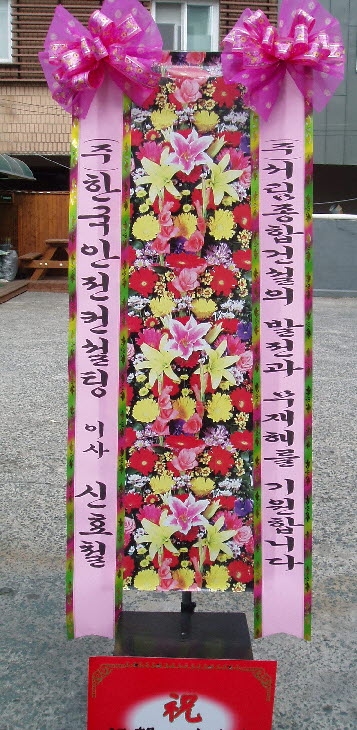 (주)한국안전컨설팅 이사 신효철
(주)서림종합건설의 발전과 무재해를 기원합니다
祝